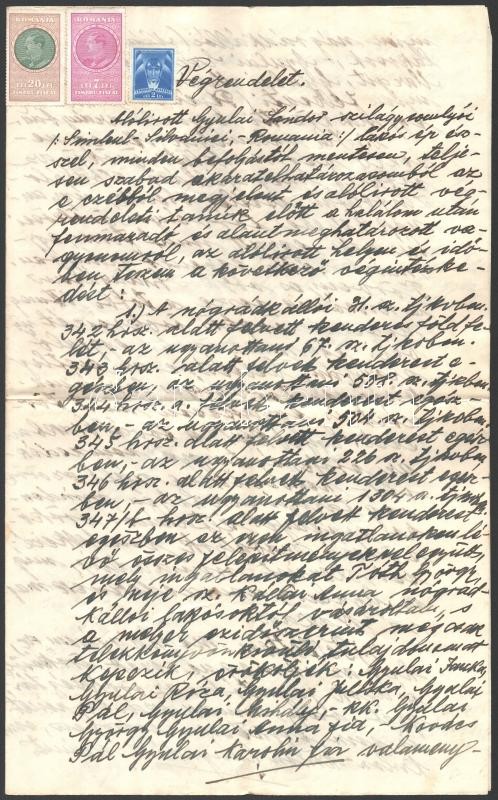 ROMANIA
ROMANIA
LEI 20 LEI
TIMBRU FISCAL
LEI 7 LEI
TIMBRU FISCAL
LEI 2 LEI
Végrendelet.
Alólirott Gyulai Sándor szilágysomlyói
/: Simleul-Silvaniei, - Romania :/ lakós ép ész-
szel, minden befolyástól mentesen, telje-
sen szabad akaratelhatározásomból az
e czélból megjelent és alólirott vég-
rendeleti tanuk előtt a halálom után
fennmaradó és alant meghatározott va-
gyonomról, az alólirott helyen és idő-
ben teszem a következő végintézke-
dést:
1.) A nógrádkállói 21. sz. tjkvben
342 hrsz. alatt felvett kenderes föld fe-
lét, - az ugyanottani 67. sz. tjkvben
343 hrsz. alatt felvett kenderest e-
gészben, az ugyanottani sz. tjkvben
344 hrsz. a. felvett kenderest egész-
ben, - az ugyanottani 504 sz. tjkvben
345 hrsz. alatt felvett kenderest egész-
ben, - az ugyanottani 226 sz. tjkvben
346 hrsz. alatt felvett kenderest egész-
ben - az ugyanottani 1304 sz. tjkvben
347/b hrsz. alatt felvett kenderest
egészben az ezek ingatlanokon lé-
vő összes felépitményekkel együtt
mely ingatlanokat Tóth György
és neje sz. Kállai Anna nógrád-
kállói lakósoktól vásároltam, s
a melyek ezidőszerint még az
telekkönyvönkivüli tulajdonomat
képezik, örököljék: Gyulai Janka,
Gyulai Róza, Gyulai Jelka, Gyulai
Pál, Gyulai Mihály, - kk. Gyulai
György Gyulai Anna fia, - Kovács
Pál Gyulai Karolin fia valameny-